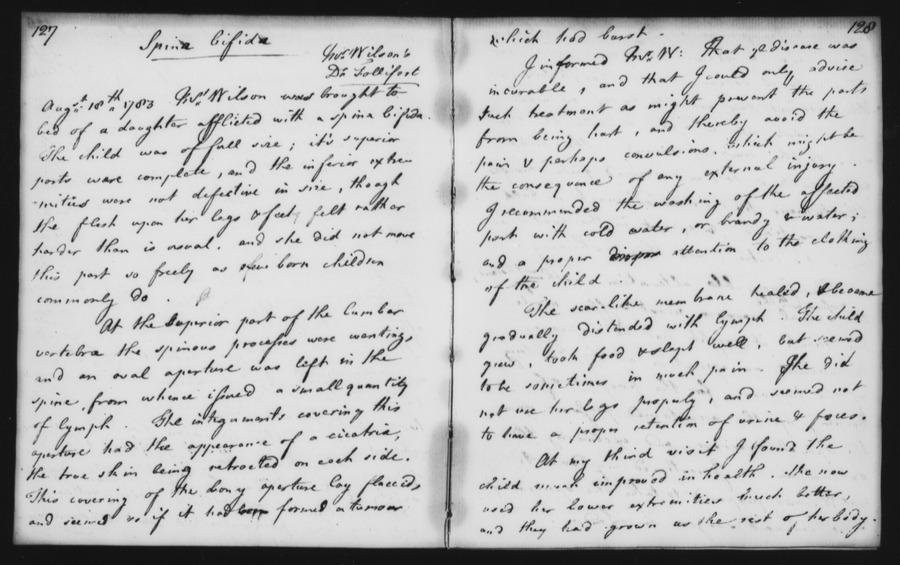 127
Spina bifida
Mrs. Wilson's
Dr. Tollifost
Augst. 18th 1783 Mrs. Wilson was brought to
bed of a daughter afflicted with a spina bifida.
The child was of full size; it's superior
parts were complete, and the inferior extre-
-mities were not defective in size, though
the flesh upon her legs & feet, felt rather
harder than is usual. and she did not move
this part so freely as new born children
commonly do.
At the superior part of the lumbar
vertebræ the spinous processes were wanting
and an oval aperture was left in the
spine, from whence issued a small quantity
of lymph. The integuments covering this
aperture had the appearance of a cicatrix,
the true skin being retracted on each side.
This covering of the bony aperture lay flaccid
and seemed as if it had formed a tumour
128
which had burst.
I informed Mrs. W: that ye disease was
incurable, and that I could only advise
such treatment as might prevent the parts
from being hurt, and thereby avoid the
pain & perhaps convulsions, which might be
the consequence of any external injury.
I recommended the washing of the affected
part with cold water, or brandy & water;
and a proper attention to the clothing
of the child.
The scar-like membrane healed, & became
gradually distended with lymph. The child
grew, took food & slept well, but seemed
to be sometimes in much pain. She did
not use her legs properly, and seemed not
to have a proper retention of urine & fæces.
At my third visit I found the
child much improved in health. She now
used her lower extremities much better,
and they had grown as the rest of her body.